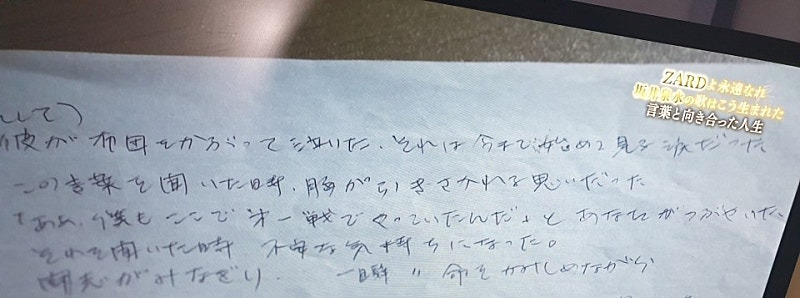 ZARDよ永遠なれ
坂井泉水の歌はこう生まれた
言葉と向き合った人生
して)
彼が布団をかぶって泣いた、それは今まで始めて見る涙だった
この言葉を聞いた時、胸が引きさかれる思いだった
「ああ、僕もここで第一戦でやっていたんだ」とあなたがつぶやいた、
それを聞いた時 不安な気持ちになった。
闘志がみなぎり、 一瞬〃 命をかみしめながら